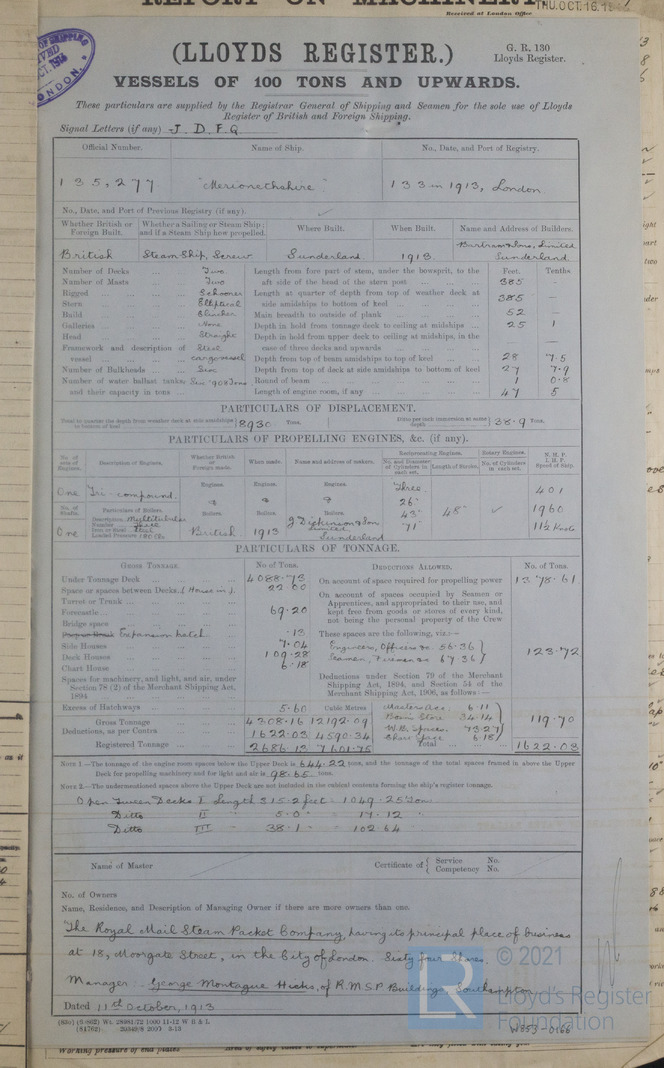 REPORT ON MACHINERY
Received at London Office THU. OCT. 16. 19
(LLOYDS REGISTER.)
G. R. 130
Lloyds Register.
VESSELS OF 100 TONS AND UPWARDS.
These particulars are supplied by the Registrar General of Shipping and Seamen for the sole use of Lloyds
Register of British and Foreign Shipping.
Signal Letters (if any) J. D. F. G.
Official Number. Name of Ship. No., Date, and Port of Registry.
135,277 "Merionethshire" 133 in 1913, London.
No., Date, and Port of Previous Registry (if any).
Whether British or Foreign Built. Whether a Sailing or Steam Ship; and if a Steam Ship how propelled. Where Built. When Built. Name and Address of Builders.
British Steam Ship, Screw Sunderland 1913. Bartram & Sons, Limited Sunderland
Number of Decks ... Two Length from fore part of stem, under the bowsprit, to the Feet. Tenths
Number of Masts ... Two aft side of the head of the stern post ... 385
Rigged ... Schooner Length at quarter of depth from top of weather deck at
Stern ... Elliptical side amidships to bottom of keel ... 385 —
Build ... Clincher Main breadth to outside of plank ... 52 —
Galleries ... None Depth in hold from tonnage deck to ceiling at midships ... 25 1
Head ... Straight Depth in hold from upper deck to ceiling at midships, in the
Framework and description of Steel case of three decks and upwards ... —
vessel ... cargo vessel Depth from top of beam amidships to top of keel ... 28 7.5
Number of Bulkheads ... Six Depth from top of deck at side amidships to bottom of keel 27 7.9
Number of water ballast tanks, Six 908 Tons Round of beam ... 1 0.8
and their capacity in tons ... Length of engine room, if any ... 47 5
PARTICULARS OF DISPLACEMENT.
Total to quarter the depth from weather deck at side amidships to bottom of keel 8930 Tons. Ditto per inch immersion at same depth 38.9 Tons.
PARTICULARS OF PROPELLING ENGINES, &c. (if any).
No. of sets of Engines. Description of Engines. Whether British or Foreign made. When made. Name and address of makers. Reciprocating Engines. Rotary Engines. N. H. P. I. H. P. Speed of Ship.
No. and Diameter of Cylinders in each set. Length of Stroke. No. of Cylinders in each set.
Engines. Engines. Engines.
One Tri-compound. & & & Three 26" 43" 71" 48" 401
No. of Shafts. Particulars of Boilers. Boilers. Boilers. Boilers. 1960
Description Multitubular
Number Three
Iron or Steel Steel
Loaded Pressure 180 lbs
One British 1913 J. Dickinson & Sons Limited Sunderland 11½ Knots
PARTICULARS OF TONNAGE.
GROSS TONNAGE. No of Tons. DEDUCTIONS ALLOWED. No. of Tons.
Under Tonnage Deck ... 4088.73 On account of space required for propelling power 1378.61
Space or spaces between Decks (House in) 22.00 On account of spaces occupied by Seamen or
Turret or Trunk ... Apprentices, and appropriated to their use, and
Forecastle ... 69.20 kept free from goods or stores of every kind,
Bridge space ... not being the personal property of the Crew
Expansion hatch .13 These spaces are the following, viz.:—
Side Houses ... 7.04 Engineers, Officers &c. 56.36
Deck Houses ... 109.28 Seamen, Firemen &c 67.36 123.72
Chart House ... 6.18
Spaces for machinery, and light, and air, under Section 78 (2) of the Merchant Shipping Act, 1894 ... Deductions under Section 79 of the Merchant Shipping Act, 1894, and Section 54 of the Merchant Shipping Act, 1906, as follows:—
Excess of Hatchways ... 5.60 Cubic Metres Masters Acc: 6.11
Gross Tonnage ... 4308.16 12192.09 Boatn Store 34.14 119.70
Deductions, as per Contra 1622.03 4590.34 W.B. Spaces 73.27
Chart Space 6.18
Registered Tonnage ... 2686.13 7601.75 Total ... 1622.03
NOTE 1.—The tonnage of the engine room spaces below the Upper Deck is 644.22 tons, and the tonnage of the total spaces framed in above the Upper
Deck for propelling machinery and for light and air is 98.65 tons.
NOTE 2.—The undermentioned spaces above the Upper Deck are not included in the cubical contents forming the ship's register tonnage.
Open Tween Decks I Length 315.2 feet 1049.25 Tons
Ditto II " 5.0 " 17.12 "
Ditto III " 38.1 " 102.64 "
Name of Master Certificate of { Service No.
Competency No.
No. of Owners
Name, Residence, and Description of Managing Owner if there are more owners than one.
The Royal Mail Steam Packet Company, having its principal place of business
at 18, Moorgate Street, in the City of London. Sixty four Shares.
Manager: George Montague Hicks, of R.M.S.P. Buildings Southampton
Dated 11th October, 1913
© 2021
Lloyd's Register
Foundation
W853-0166